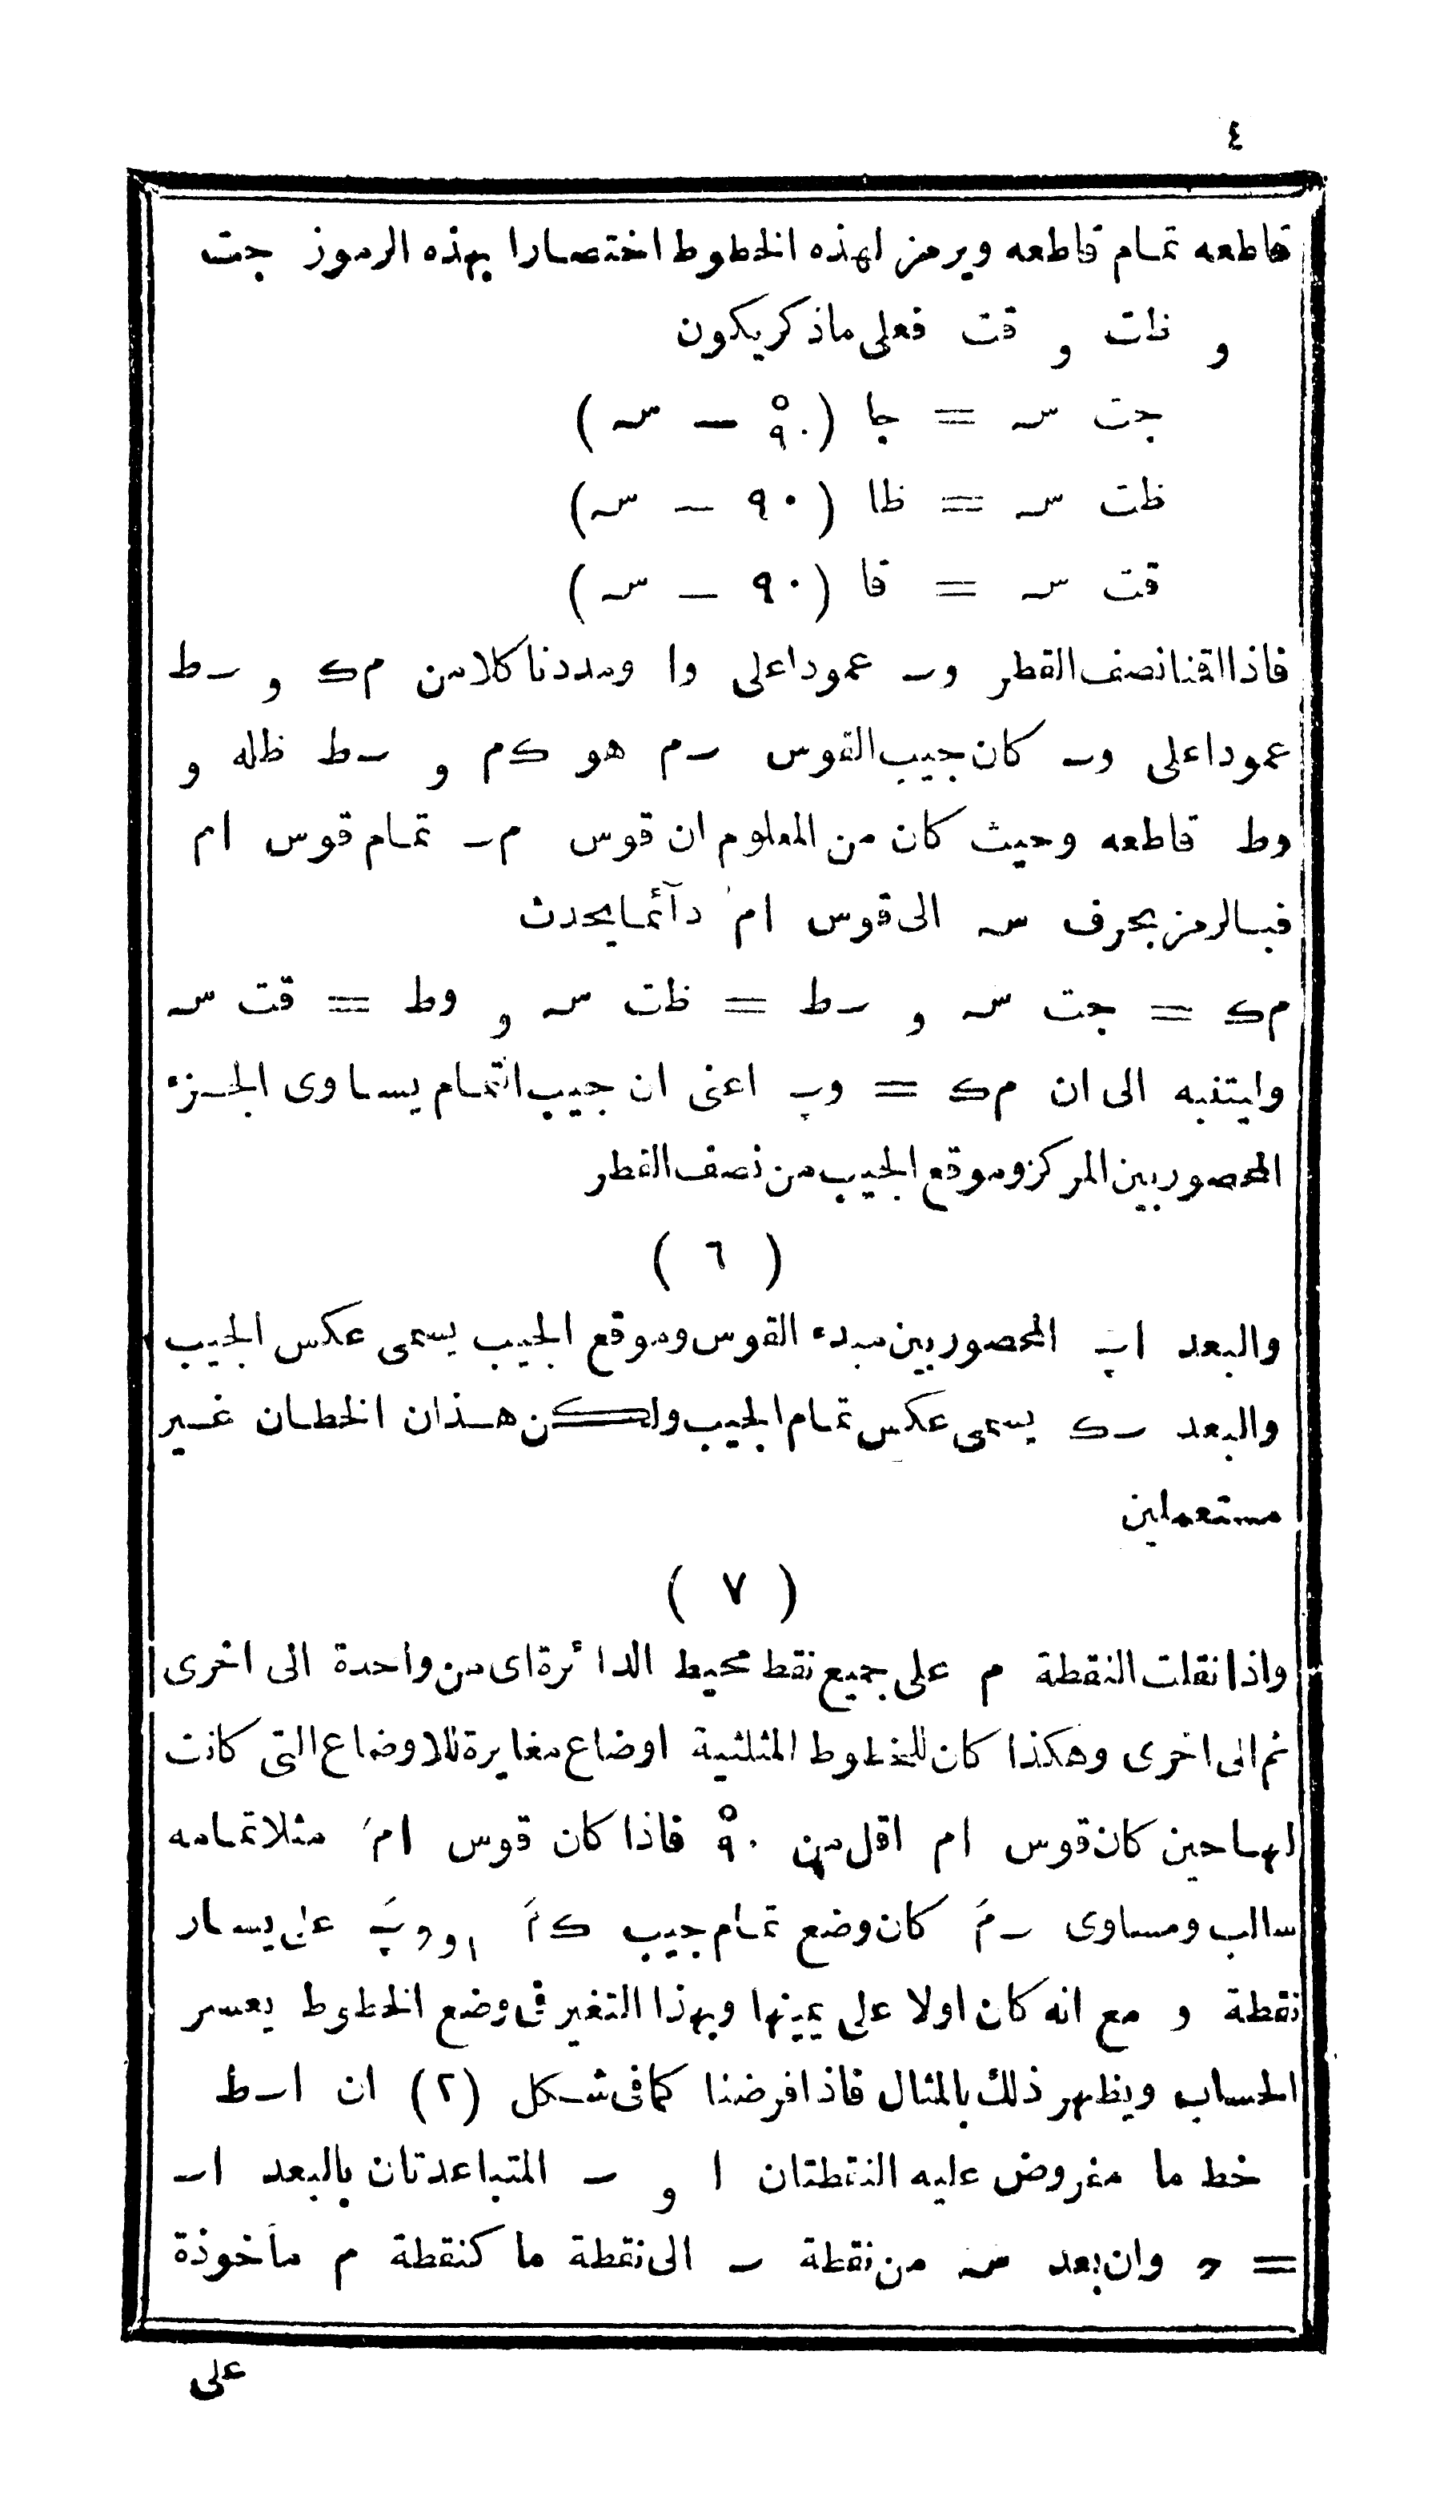 ٤
قاطعه تمام قاطعه ويرمز لهذه الخطوط اختصارا بهذه الرموز جت
و ظت و قت فعلى ماذكر يكون
جت س = جا (٩٠° — س)
ظت س = ظا (٩٠ — س)
قت س = قا (٩٠ — س)
فاذا اقنا نصف القطر وٮ عمودا على وا ومددنا كلا من مك و ٮط
عمودا على وٮ كان جيب القوس ٮم هو كم و ٮط ظله و
وط قاطعه وحيث كان من المعلوم ان قوس مٮ تمام قوس ام
فبالرمز بحرف س الى قوس ام دآئما يحدث
مك = جت س و ٮط = ظت س و وط = قت س
وليتنبه الى ان مك = وپ اعنى ان جيب التمام يساوى الجزء
المحصور بين المركز وموقع الجيب من نصف القطر
(٦)
والبعد اپ المحصور بين مبدء القوس وموقع الجيب يسمى عكس الجيب
والبعد ٮك يسمى عكس تمام الجيب ولكن هذان الخطان غير
مستعملين
(٧)
واذا نقلت النقطة م على جميع نقط محيط الدائرة اى من واحدة الى اخرى
ثم الى اخرى وهكذا كان للخطوط المثلثية اوضاع مغايرة للاوضاع التى كانت
لها حين كان قوس ام اقل من ٩٠° فاذا كان قوس امَ مثلا تمامه
سالب ومساوى ٮمَ كان وضع تمام جيب كمَ او وپَ على يسار
نقطة و مع انه كان اولا على يمينها وبهذا التغير فى وضع الخطوط يعسر
الحساب ويظهر ذلك بالمثال فاذا فرضنا كما فى شكل (٢) ان اٮط
خط ما مفروض عليه النقطتان ا و ٮ المتباعدتان بالبعد اٮ
= ء وان بعد س من نقطة ٮ الى نقطة ما كنقطة م مأخوذة
على